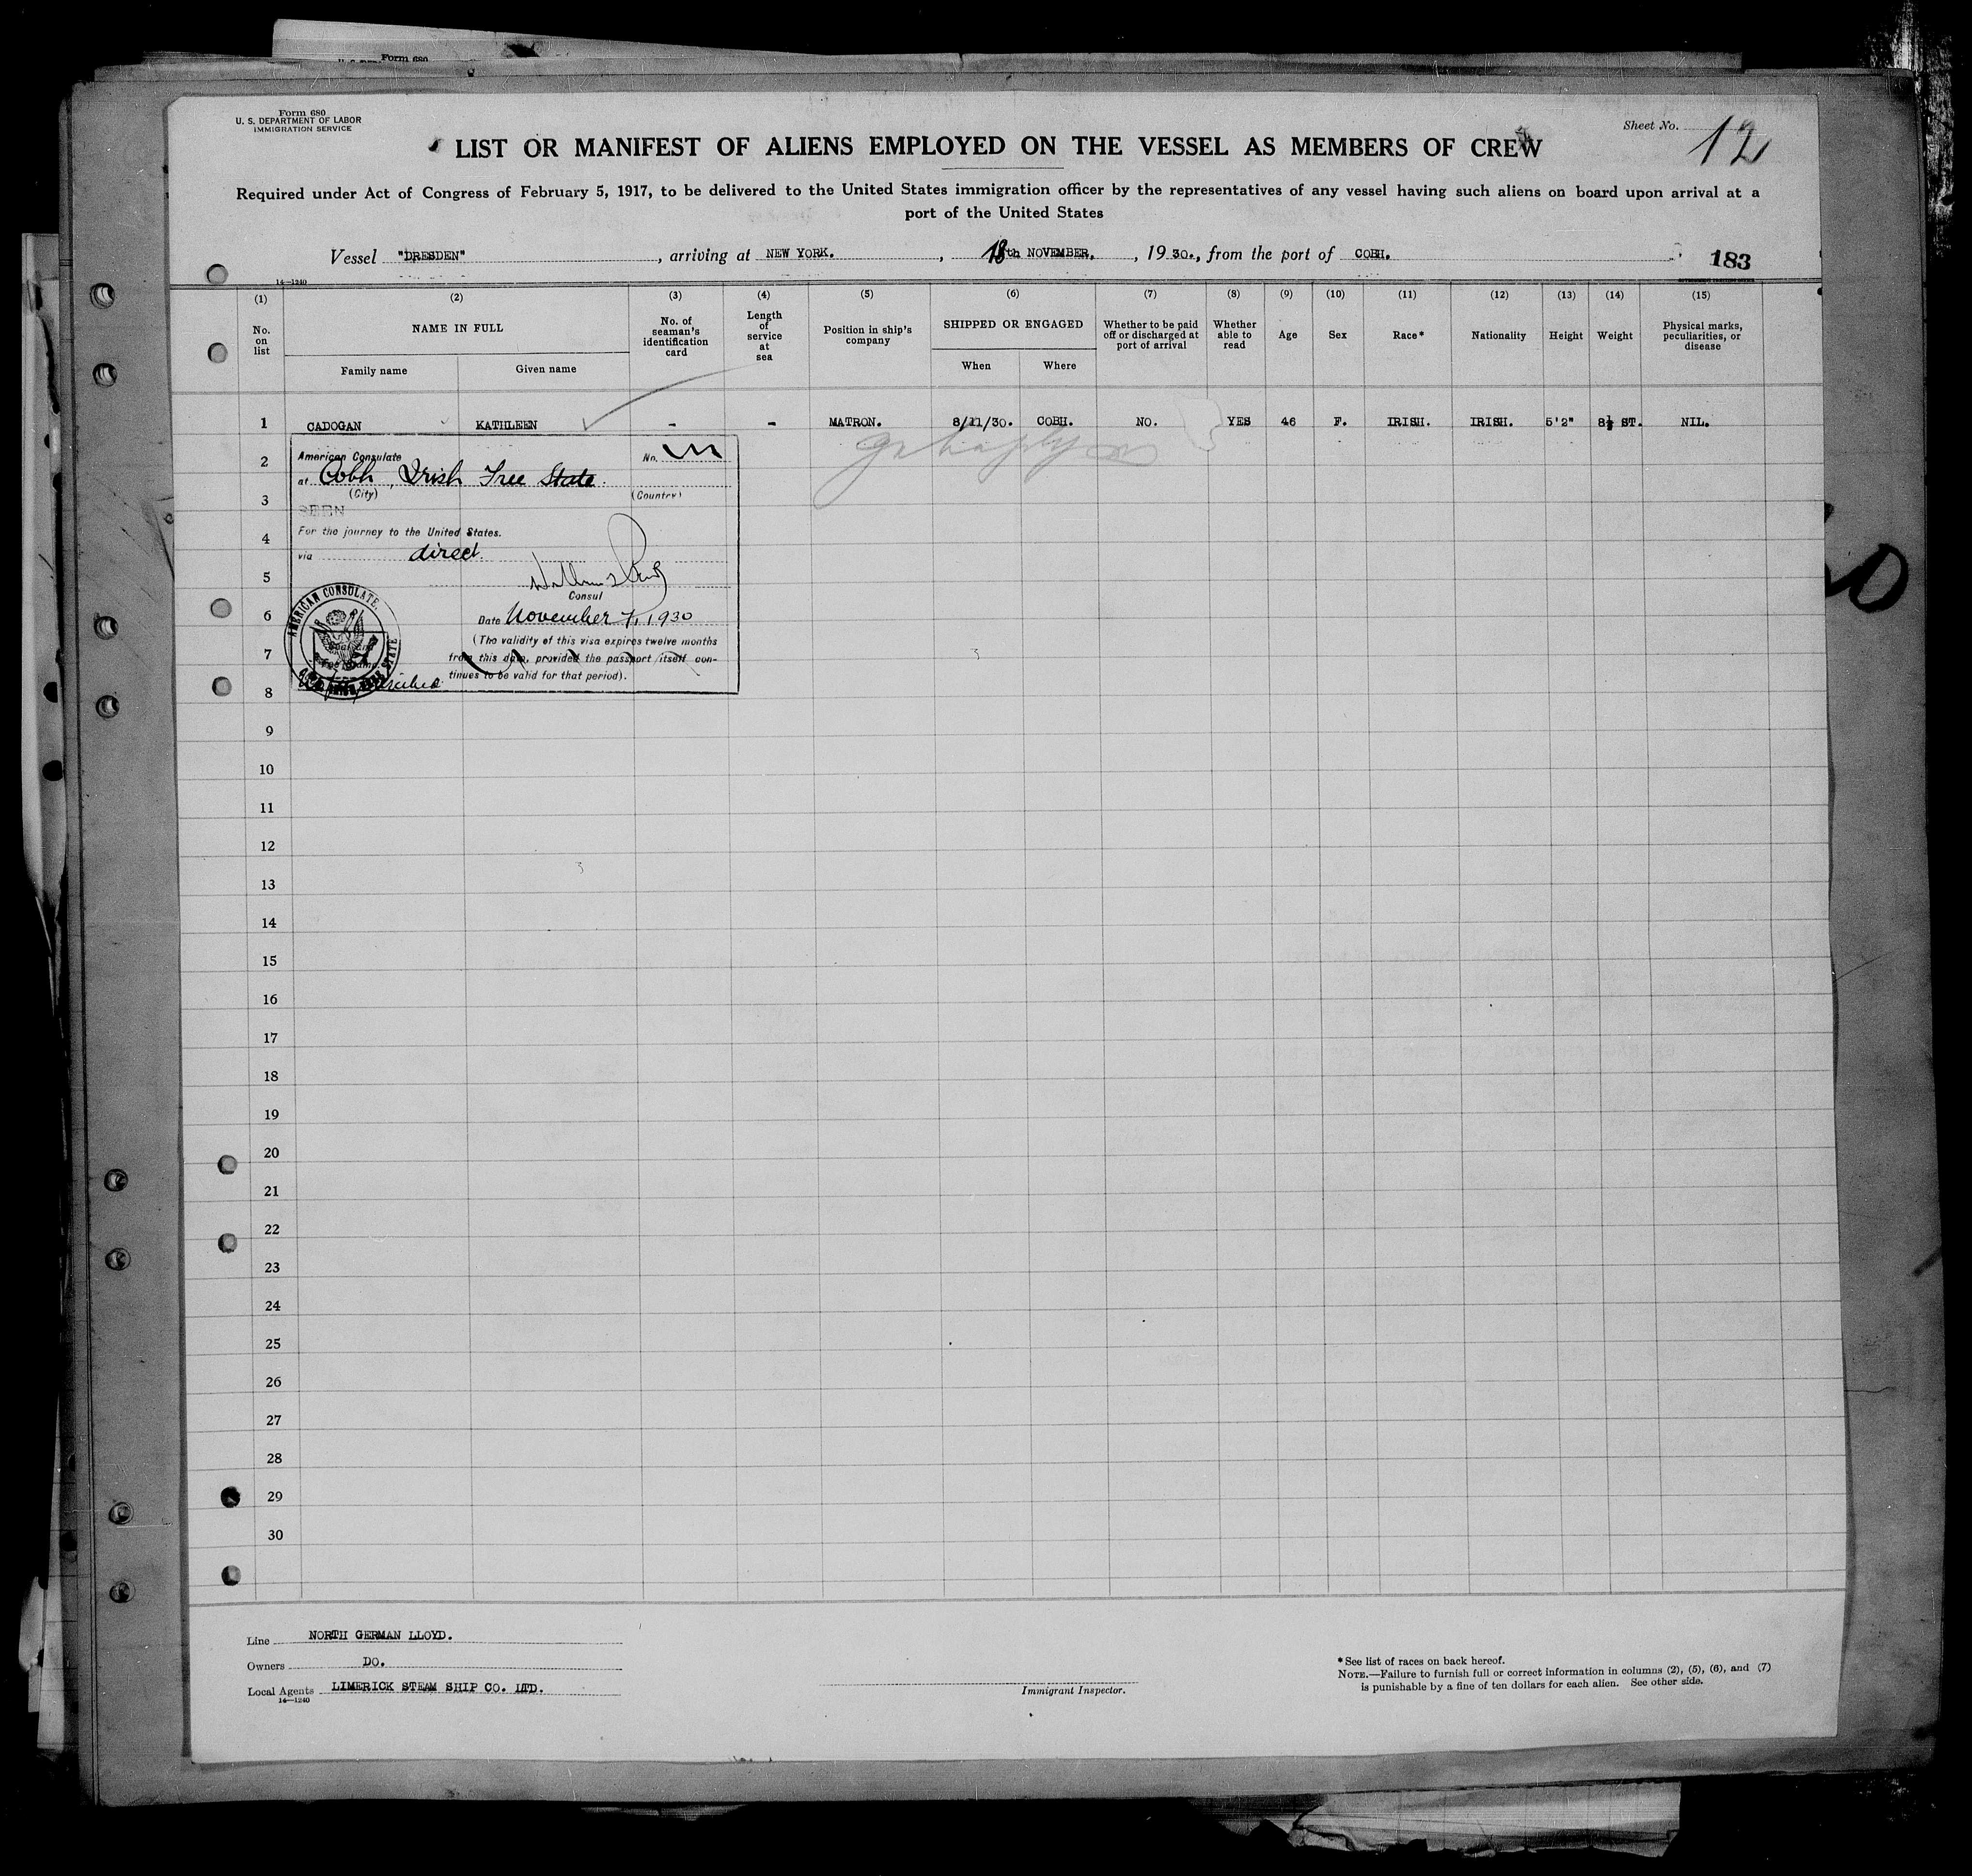 Form 680
Form 680
U. S. DEPARTMENT OF LABOR
IMMIGRATION SERVICE
Sheet No. 12
LIST OR MANIFEST OF ALIENS EMPLOYED ON THE VESSEL AS MEMBERS OF CREW
Required under Act of Congress of February 5, 1917, to be delivered to the United States immigration officer by the representatives of any vessel having such aliens on board upon arrival at a
port of the United States
Vessel "DRESDEN", arriving at NEW YORK., 18th NOVEMBER., 1930., from the port of COBH.
183
14—1240
(1) (2) (3) (4) (5) (6) (7) (8) (9) (10) (11) (12) (13) (14) (15)
No. on list
NAME IN FULL
Family name
Given name
No. of seaman's identification card
Length of service at sea
Position in ship's company
SHIPPED OR ENGAGED
When
Where
Whether to be paid off or discharged at port of arrival
Whether able to read
Age
Sex
Race*
Nationality
Height
Weight
Physical marks, peculiarities, or disease
1 CADOGAN KATHLEEN - - MATRON. 8/11/30. COBH. NO. YES 46 F. IRISH. IRISH. 5'2" 8½ ST. NIL.
2
3
4
5
6
7
8
9
10
11
12
13
14
15
16
17
18
19
20
21
22
23
24
25
26
27
28
29
30
American Consulate No.
at Cobh, Irish Free State.
(City) (Country)
SEEN
For the journey to the United States.
via direct.
Consul
Date November 7, 1930
(The validity of this visa expires twelve months
from this date, provided the passport itself con-
tinues to be valid for that period).
AMERICAN CONSULATE.
Line NORTH GERMAN LLOYD.
Owners DO.
Local Agents LIMERICK STEAM SHIP CO. LTD.
14—1240
Immigrant Inspector.
* See list of races on back hereof.
NOTE.—Failure to furnish full or correct information in columns (2), (5), (6), and (7)
is punishable by a fine of ten dollars for each alien. See other side.